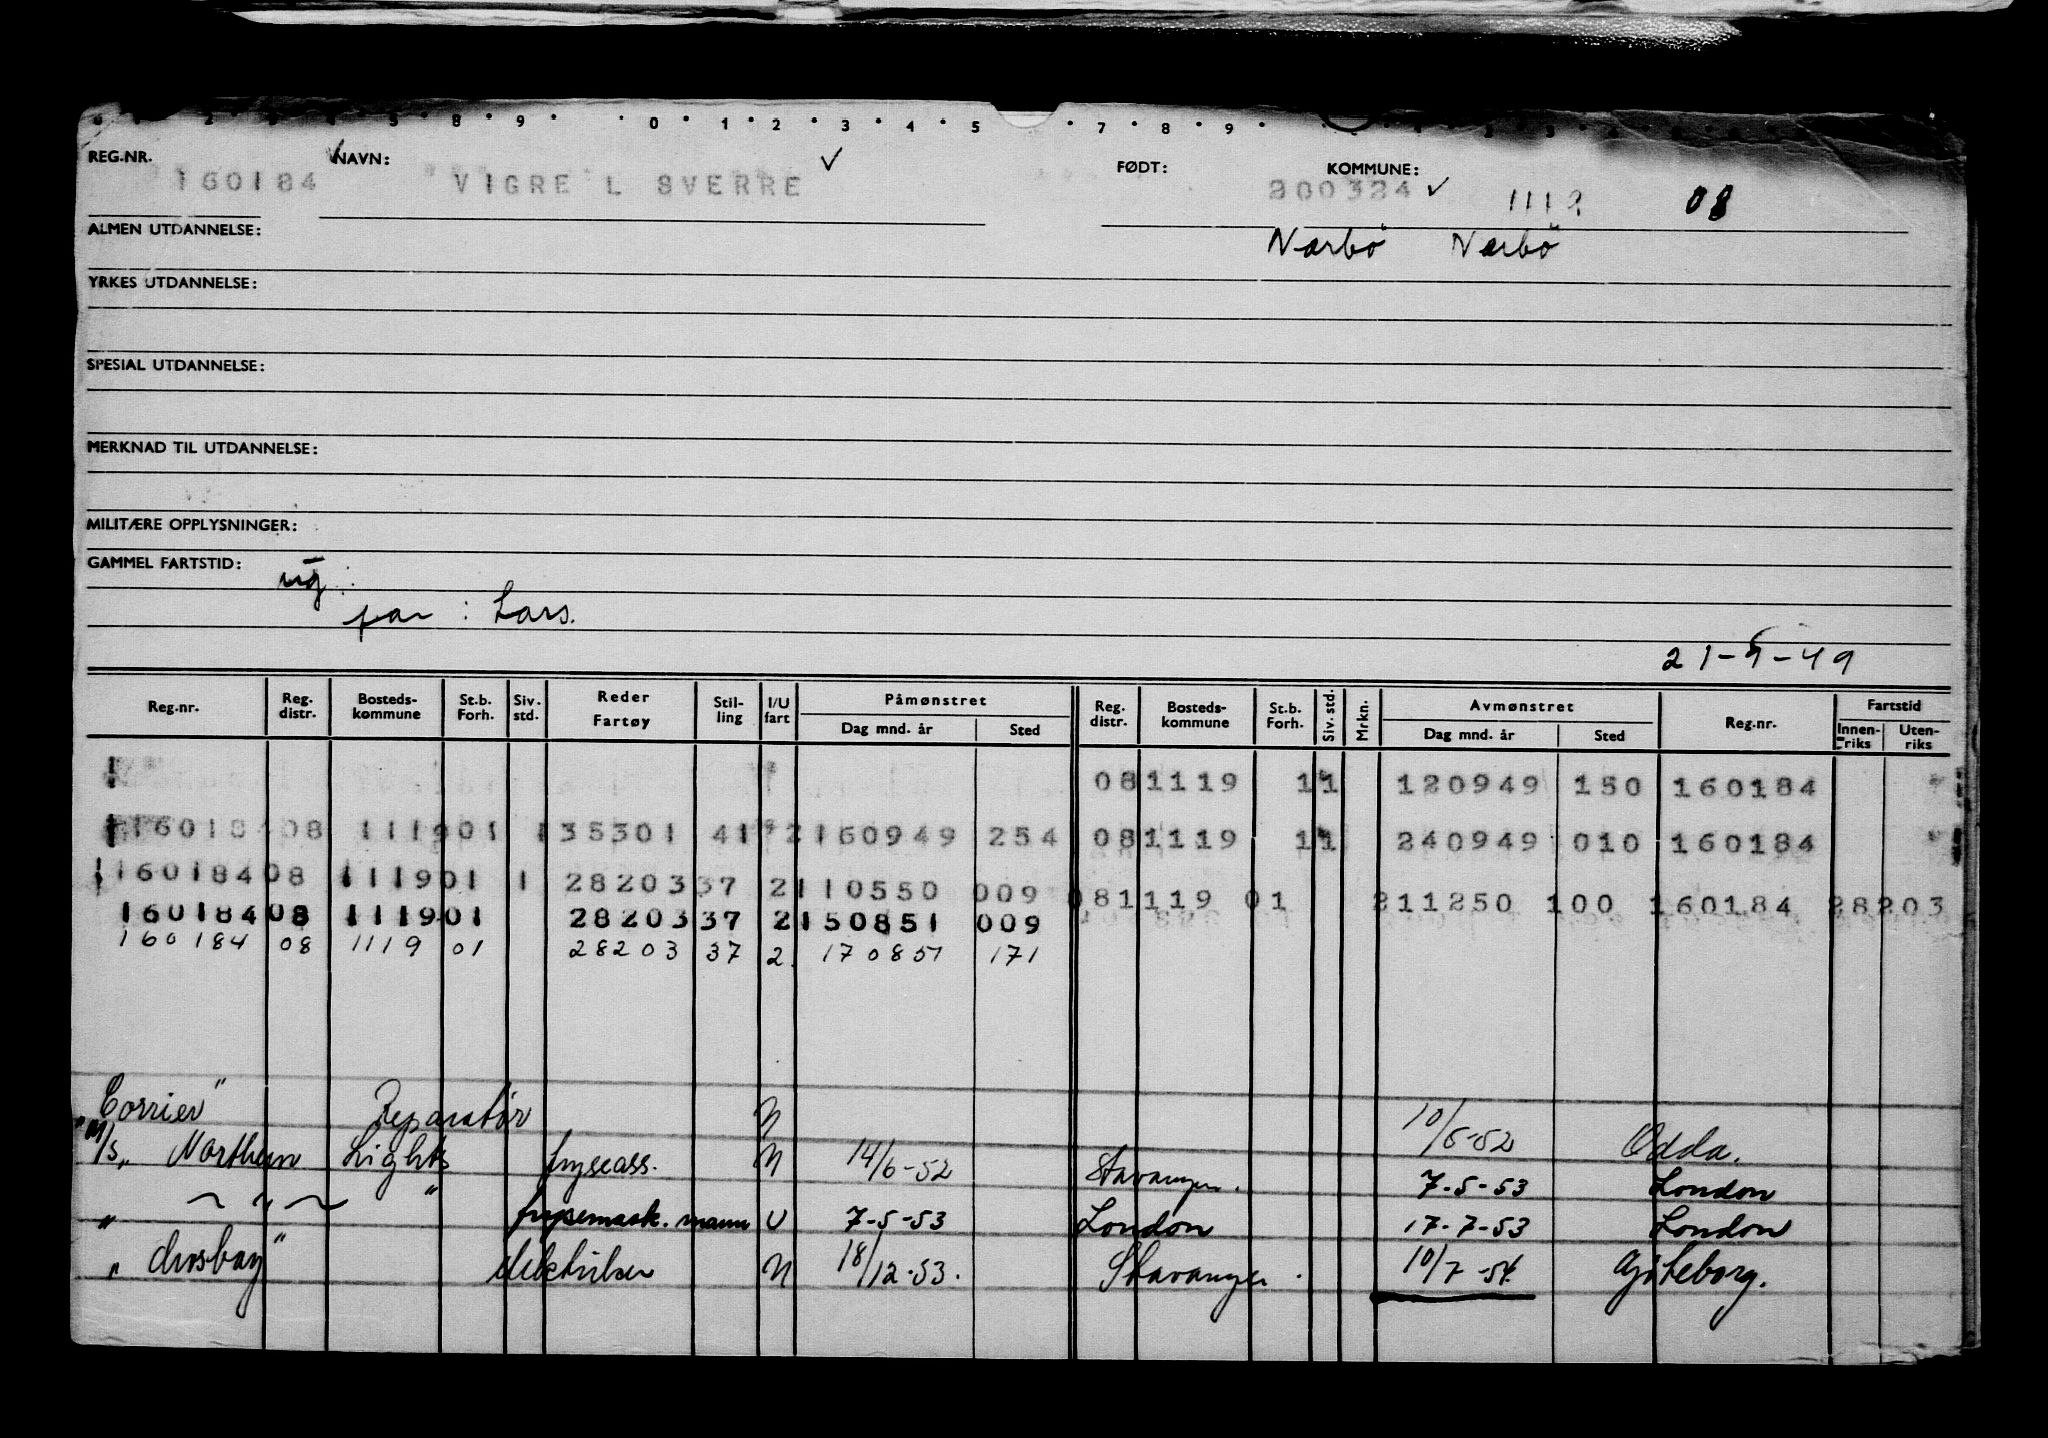 REG.NR. NAVN: FØDT: KOMMUNE:
160184 VIGRE L SVERRE 200324 08
ALMEN UTDANNELSE: Nærbö Nærbö
YRKES UTDANNELSE:
SPESIAL UTDANNELSE:
MERKNAD TIL UTDANNELSE:
MILITÆRE OPPLYSNINGER:
GAMMEL FARTSTID:
far : Lars.
21-9-49
Reg.nr. Reg. distr. Bosteds-kommune St.b. Forh. Siv. std. Reder Fartøy Stil-ling I/U fart Påmønstret Dag mnd. år Sted Reg. distr. Bosteds-kommune St.b. Forh. Siv. std. Mrkn. Avmønstret Dag mnd. år Sted Reg.nr. Fartstid Innen-riks Uten-riks
08 1119 1 1 120949 150 160184
160184 08 1119 01 1 35301 41 2 160949 254 08 1119 1 1 240949 010 160184
160184 08 1119 01 1 28203 37 2 110550 009 08 1119 01 211250 100 160184 28203
160184 08 1119 01 28203 37 2 150851 009
160184 08 1119 01 28203 37 2 170851 171
"Corrier" Reparatør N 10/5-52 Odda.
M/S "Northern Lights fryseass. N 14/6-52 Stavanger. 7-5-53 London
" — " — " frysemask.mann U 7-5-53 London 17-7-53 London
" " elektriker N 18/12-53. Stavanger. 10/7-54 Göteborg.